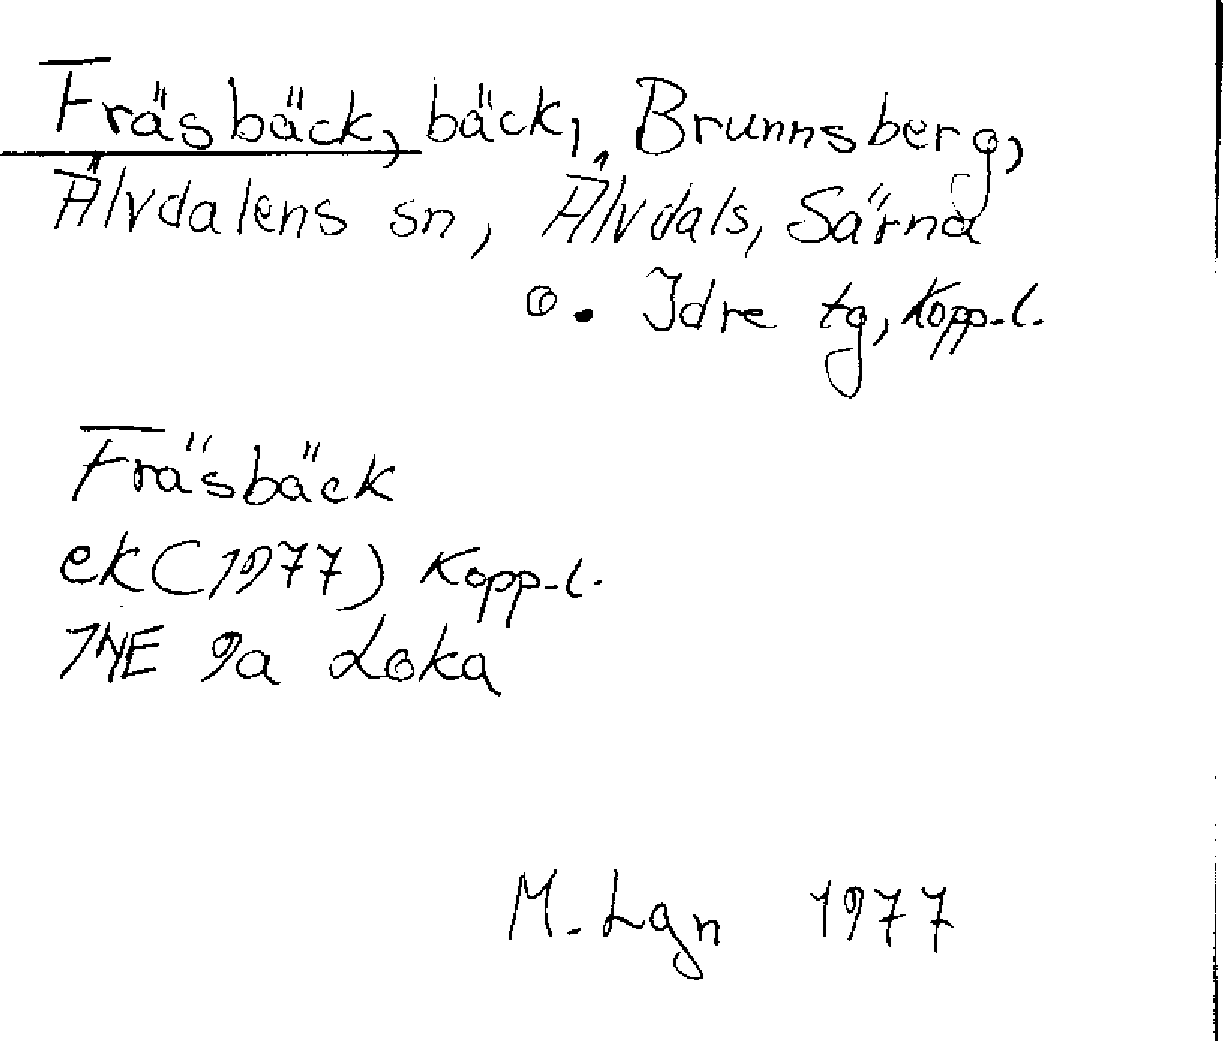 Fräsbäck, bäck, Brunnsberg,
Älvdalens sn, Älvdals, Särna
o. Idre tg, Kopp.l.
Fräsbäck
ek (1977) Kopp.l.
14E 9a Loka
M. Lgn 1977